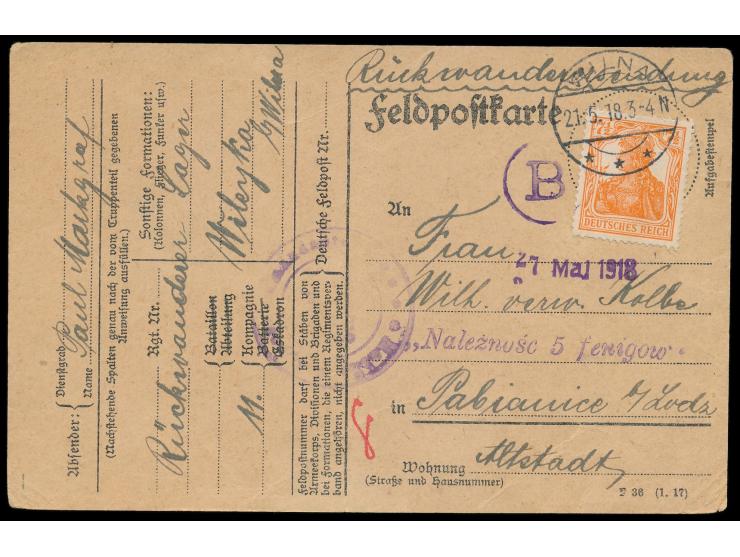 Rückwanderersendung
Feldpostkarte
WILNA
21.5.18.3-4 N
7½ 7½
DEUTSCHES REICH
Aufgabestempel
B
An
Frau
27 Maj 1918
Wilh. verw. Kolbe
„Należnośc 5 fenigow.
in Pabianice b/Lodz
Altstadt,
Wohnung
(Straße und Hausnummer)
F 36 (1. 17)
8
Absender:
Dienstgrad
Name Paul Markgraf
(Nachstehende Spalten genau nach der vom Truppenteil gegebenen
Anweisung ausfüllen.)
Sonstige Formationen:
(Kolonnen, Flieger, Funker usw.)
Rgt. Nr.
Rückwanderer Lager
Bataillon
Abteilung
11. Kompagnie
Batterie
Eskadron
Wileyka
b/Wilna
Deutsche Feldpost Nr.
Feldpostnummer darf bei Stäben von
Armeekorps, Divisionen und Brigaden und
bei Formationen, die einem Regimentsver-
band angehören, nicht angegeben werden.